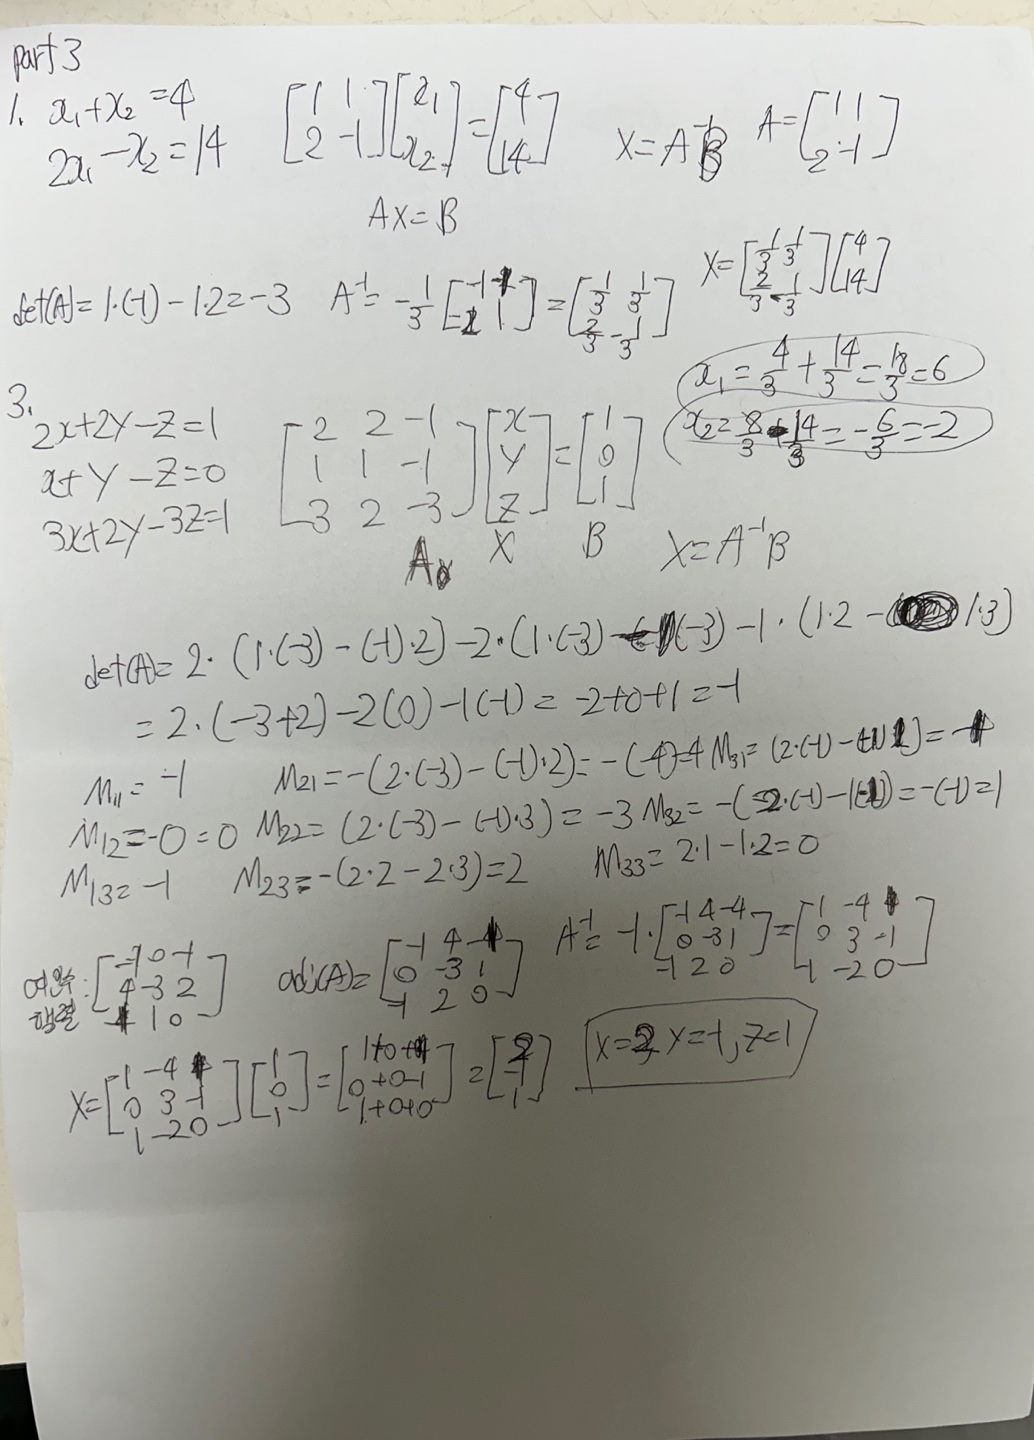 part 3
1. x₁+x₂=4
2x₁-x₂=14
[1 1; 2 -1][x₁; x₂]=[4; 14]
AX=B
X=A⁻¹B
A=[1 1; 2 -1]
det(A)=1·(-1)-1·2=-3
A⁻¹=-1/3[-1 -1; -2 1]=[1/3 1/3; 2/3 -1/3]
X=[1/3 1/3; 2/3 -1/3][4; 14]
x₁=4/3+14/3=18/3=6
x₂=8/3-14/3=-6/3=-2
3.
2x+2y-z=1
x+y-z=0
3x+2y-3z=1
[2 2 -1; 1 1 -1; 3 2 -3][x; y; z]=[1; 0; 1]
A X B
X=A⁻¹B
det(A)=2·(1·(-3)-(-1)·2)-2·(1·(-3)-(-3)-1·(1·2-1·3)
=2·(-3+2)-2(0)-1(-1)=-2+0+1=-1
M₁₁=-1
M₂₁=-(2·(-3)-(-1)·2)=-(-4)=4
M₃₁=(2·(-1)-
M₁₂=-0=0
M₂₂=(2·(-3)-(-1)·3)=-3
M₃₂=-(2·(-1)-1(-1))=-(-1)=1
M₁₃=-1
M₂₃=-(2·2-2·3)=2
M₃₃=2·1-1·2=0
여인수 행렬:[-1 0 -1; 4 -3 2; -1 1 0]
adj(A)=[-1 4 -1; 0 -3 1; -1 2 0]
A⁻¹=-1·[-1 4 -4; 0 -3 1; -1 2 0]=[1 -4 1; 0 3 -1; 1 -2 0]
X=[1 -4 1; 0 3 -1; 1 -2 0][1; 0; 1]=[1+0+1; 0+0-1; 1+0+0]=[2; -1; 1]
x=2, y=-1, z=1